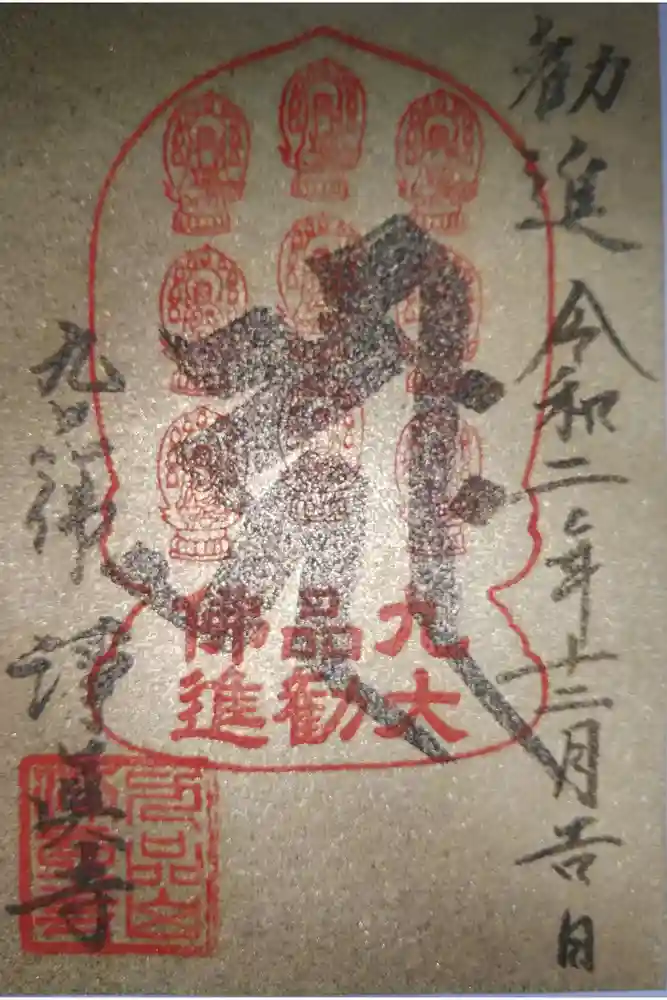 勧進 令和二年十二月吉日
九品佛
大勧進
九品佛 浄眞寺